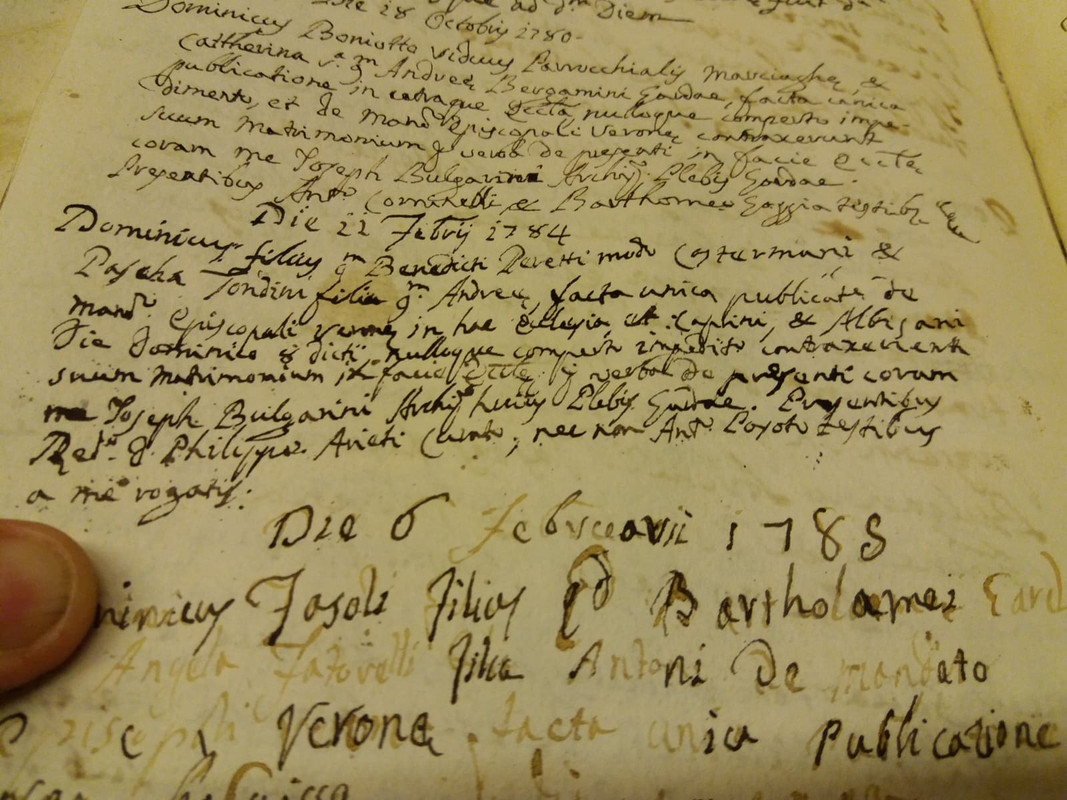 Die 28 Octobris 1780
Dominicus Boniotto viduus Parrochialis Marciaghe, &
Catherina qm Andreę Bergamini Gardae, facta unica
publicatione in utraque Eccla, nulloque comperto impe-
dimento, et de Mando Episcopali Veronę contraxerunt
suum Matrimonium p verba de presenti in facie Eccle,
coram me Joseph Bulgarini Archip. Plebis Gardae.
Presentibus Ant. & Bartholomeo testibus
Die 22 Febrij 1784
Dominicus filius qm Benedicti Peretti modo Castermani &
Pascha Tondini filia qm Andreę, facta unica publicate de
mando Episcopali Veronę in hac Ecclesia et Caprini, & Albisani
Die Dominico 8 dicti, nulloque comperto impedito contraxerunt
suum Matrimonium in facie Eccle p verba de presenti coram
me Joseph Bulgarini Archip huius Plebis Gardae. Presentibus
D. Philippo Arieti Curato, nec non Ant. testibus
a me rogatis.
Die 6 Februarii 1785
Jasoli Filius qd Bartholamei
Angela Filia Antoni De mandato
Veronę facta unica Publicatione